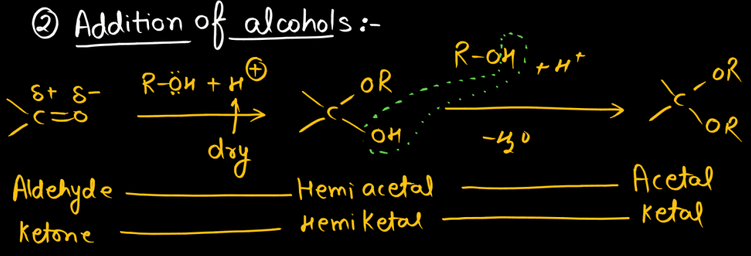 ② Addition of alcohols :-
δ+ δ- R-ÖH + H⊕ OR R-OH + H⁺ OR
C=O C C
OH -H₂O OR
dry
Aldehyde Hemiacetal Acetal
Ketone HemiKetal Ketal